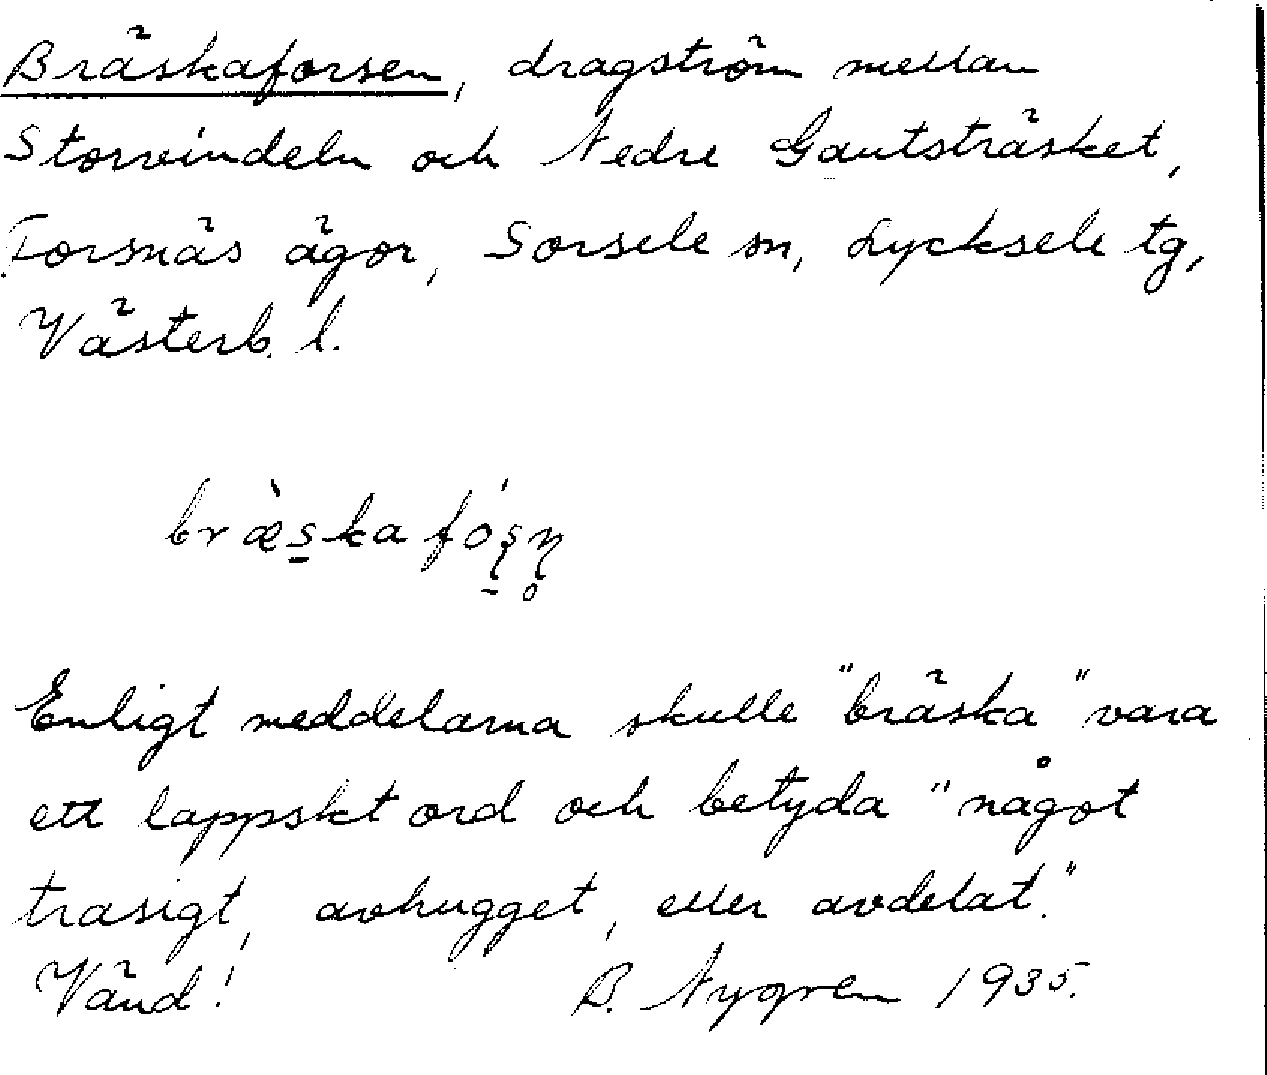 Bräskaforsen, dragström mellan
Storvindeln och Nedre Gautsträsket,
Forsnäs ägor, Sorsele sn, Lycksele tg,
Västerb. l.
bræ̀s̠ka fó̩ʂn̥
Enligt meddelarna skulle "bräska" vara
ett lappskt ord och betyda "något
trasigt, avhugget, eller avdelat."
Vänd! B. Nygren 1935.